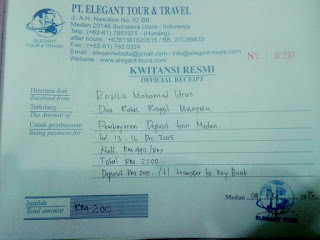 PT. ELEGANT TOUR & TRAVEL
Jl. A.H. Nasution No. 92 BB
Medan 20146 Sumatera Utara - Indonesia
Telp. (+62-61) 7851971 - (Hunting)
after hours : +6281361620515 / BB. 27C89833
Fax : (+62-61) 785 0324
Email : elegantwisata@ymail.com / info@elegant-tours.com
Website : www.elegant-tours.com
ELEGANT
TOUR & TRAVEL
KWITANSI RESMI
OFFICIAL RECEIPT
Diterima dari
Received from
Rozila Mohamad Idrus
Terbilang
The Amount of
Dua Ratus Ringgit Malaysia
Untuk pembayaran
Being payment for
Pembayaran Deposit tour Medan
tgl 13 - 16 Dec 2015
Total RM 2200
Deposit RM 200 transfer to May Bank
Jumlah
Total amount
RM 200
Medan
ELEGANT TOUR